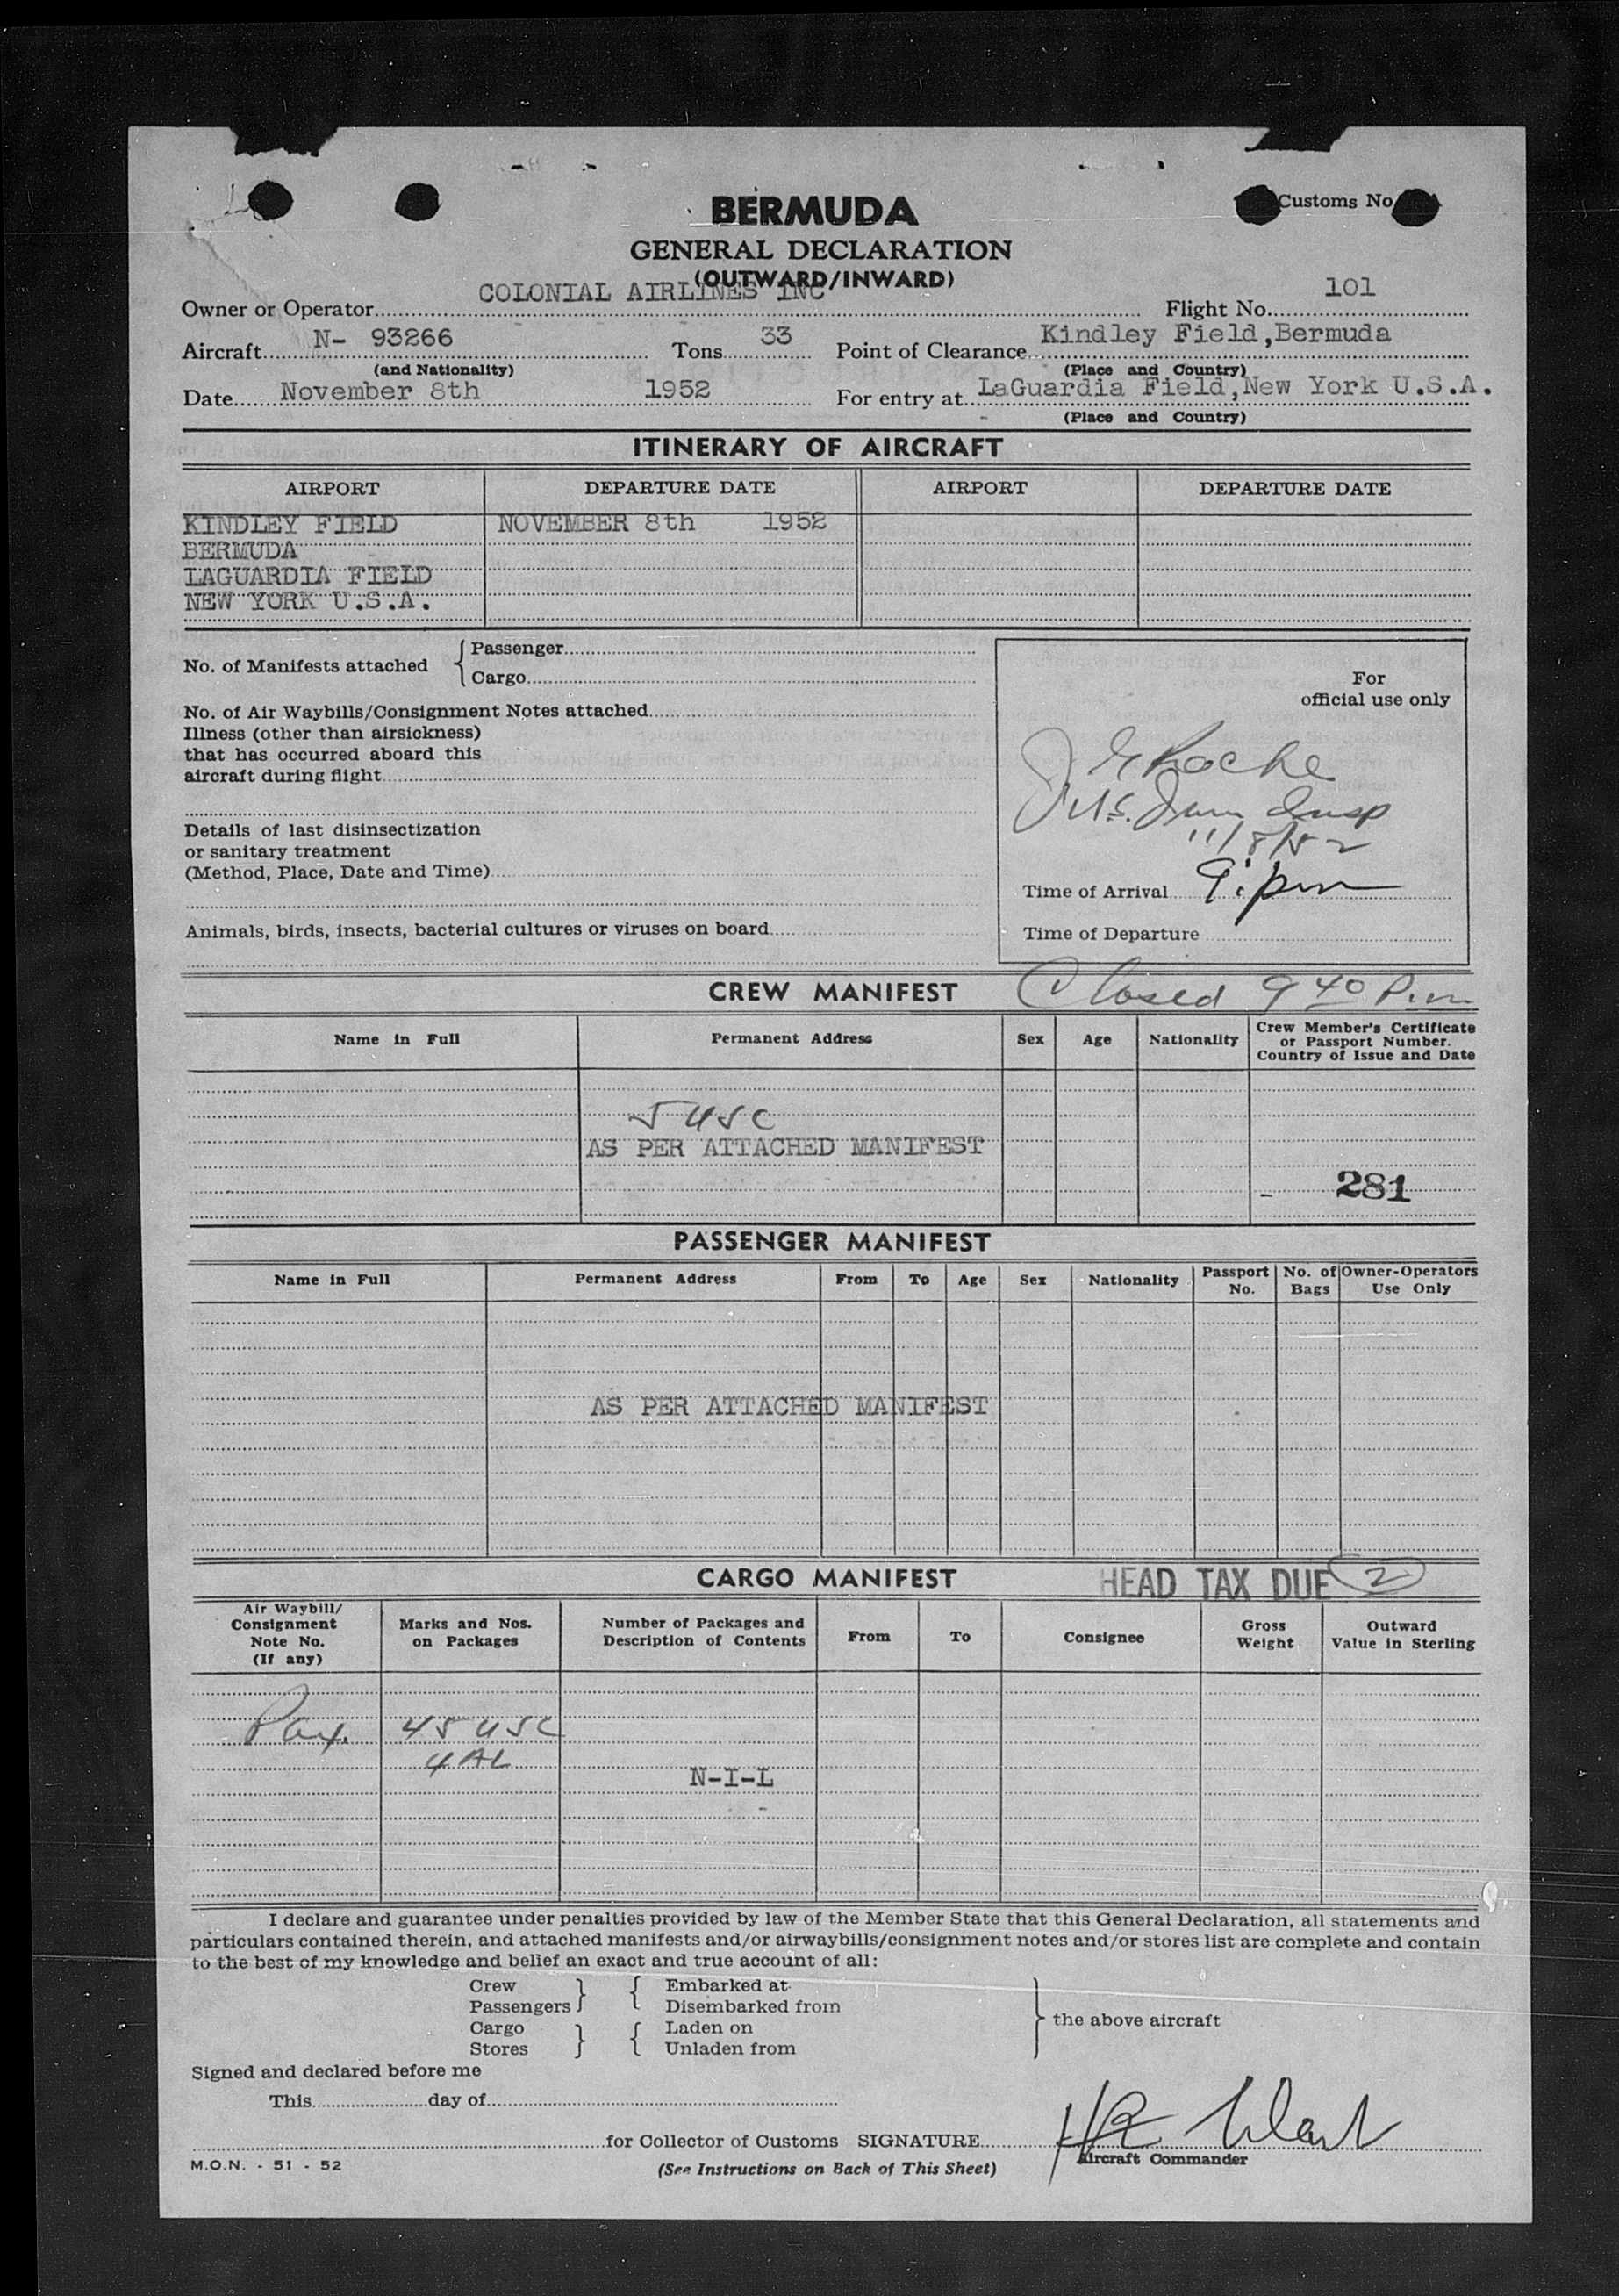 Customs No
BERMUDA
GENERAL DECLARATION
(OUTWARD/INWARD)
Owner or Operator COLONIAL AIRLINES INC Flight No. 101
Aircraft N- 93266 Tons 33 Point of Clearance Kindley Field,Bermuda
(and Nationality) (Place and Country)
Date November 8th 1952 For entry at LaGuardia Field,New York U.S.A.
(Place and Country)
ITINERARY OF AIRCRAFT
AIRPORT DEPARTURE DATE AIRPORT DEPARTURE DATE
KINDLEY FIELD NOVEMBER 8th 1952
BERMUDA
LAGUARDIA FIELD
NEW YORK U.S.A.
No. of Manifests attached { Passenger
Cargo
No. of Air Waybills/Consignment Notes attached
Illness (other than airsickness)
that has occurred aboard this
aircraft during flight
Details of last disinsectization
or sanitary treatment
(Method, Place, Date and Time)
Animals, birds, insects, bacterial cultures or viruses on board
For
official use only
Roche
U.S. Imm Insp
11/8/52
Time of Arrival 9: pm
Time of Departure
CREW MANIFEST Closed 9 40 P.m
Name in Full Permanent Address Sex Age Nationality Crew Member's Certificate or Passport Number. Country of Issue and Date
5 USC
AS PER ATTACHED MANIFEST
281
PASSENGER MANIFEST
Name in Full Permanent Address From To Age Sex Nationality Passport No. No. of Bags Owner-Operators Use Only
AS PER ATTACHED MANIFEST
CARGO MANIFEST HEAD TAX DUE 2
Air Waybill/ Consignment Note No. (If any) Marks and Nos. on Packages Number of Packages and Description of Contents From To Consignee Gross Weight Outward Value in Sterling
Pax. 45 USC
4 AL
N-I-L
I declare and guarantee under penalties provided by law of the Member State that this General Declaration, all statements and
particulars contained therein, and attached manifests and/or airwaybills/consignment notes and/or stores list are complete and contain
to the best of my knowledge and belief an exact and true account of all:
Crew } { Embarked at
Passengers Disembarked from
Cargo } { Laden on
Stores Unladen from
} the above aircraft
Signed and declared before me
This day of
for Collector of Customs SIGNATURE
Aircraft Commander
M.O.N. - 51 - 52 (See Instructions on Back of This Sheet)